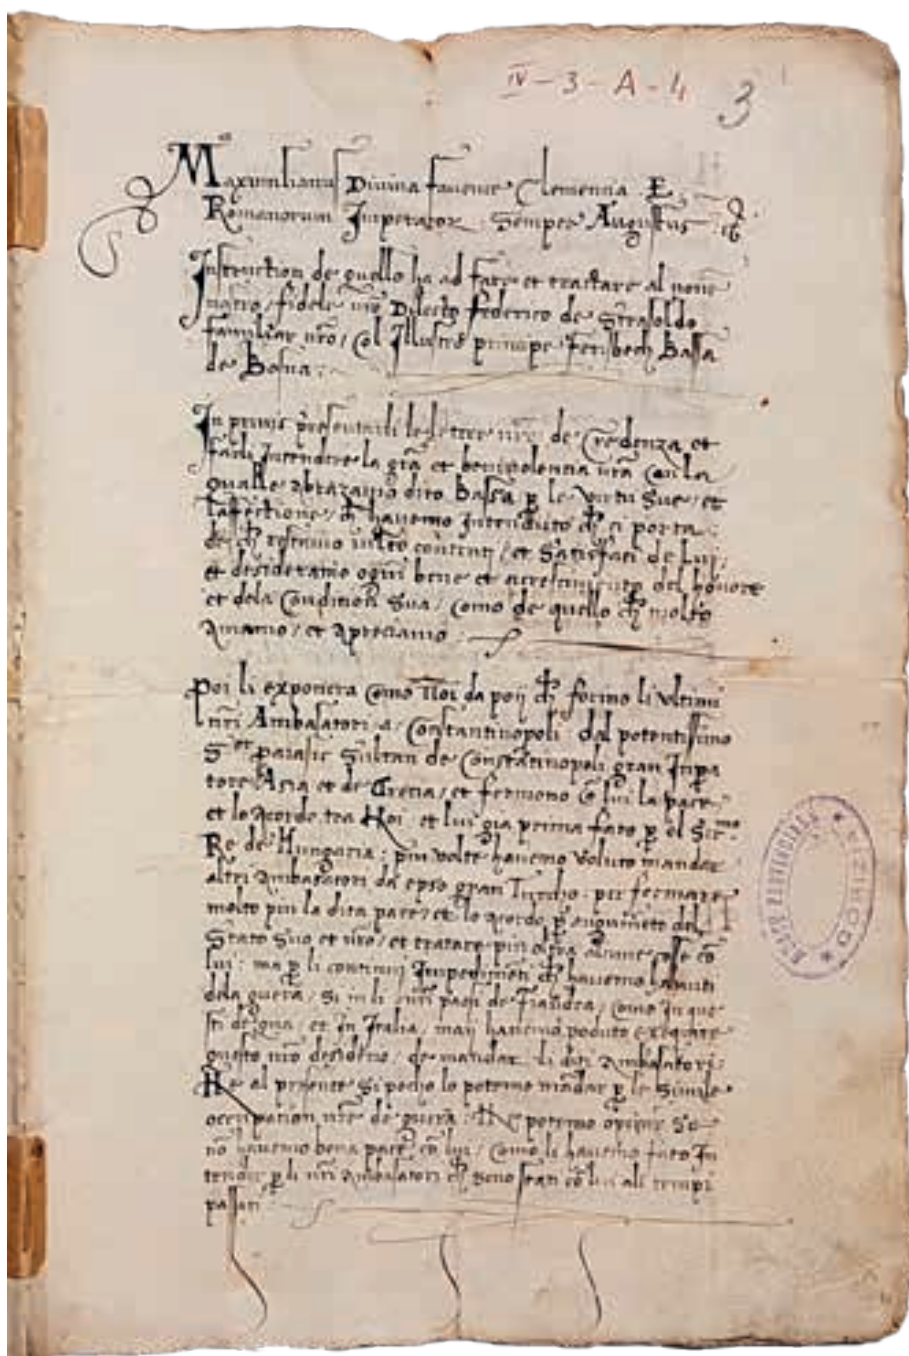 IV-3-A-4 3
Maximilianus Divina favente Clementia E.
Romanorum Imperator Semper Augustus
Instruction de quello ha ad fare et tractare al
fidele nro Dilecto Federico de Strasoldo
familiar nro, col Illustre principe Ferisbech Bassa
de Bosna:
In primis presentarli le lettere nre de Credenza et
farli Intendere la gra et benivolencia nra con la
qualle abrazamo dito Bassa p le virtu sue, et
laffectione, ch havemo Intenduto ch ci porta:
de ch restamo contenti, et Satisfati de Lui,
et desideramo ogni bene et acrescimento del honore
et dela Condition Sua, como de quello ch molto
Amamo, et Apreciamo:
Poi li exponera Como Noi da poy ch forino li ultimi
nri Ambasatori a Constantinopoli dal potentissimo
Sor Sultan de Constantinopoli gran Inpa
tore Asia et de Grecia, et fermono co lui la pace
et lo Acordo tra Noi et lui gia prima fato p el Sermo
Re de Hungaria: piu volte havemo voluto mandar
altri Ambasatori da epso gran Turcho per fermare
molto piu la dita pace, et lo acordo p del
Stato Suo et nro, et tratare piu oltra alcune cosse co
lui: ma p li continui Impedimenti ch havemo hauuti
dela guera, Si in li nri paesi de Fiandra, como In que
sti de qua, et In Italia, may havemo poduto exequire
questo nro desiderio, de mandar li diti Ambasatori:
Ne al presente Si pocho lo potemo madar p le Simile
occupation nre de guera: Ne potemo Se
no havemo bona pace co lui, Como li havemo fato In
tender p li nri Ambasatori ch sono stati co lui ali tempi
passati
MUSEO PROVINCIALE * GORIZIA *